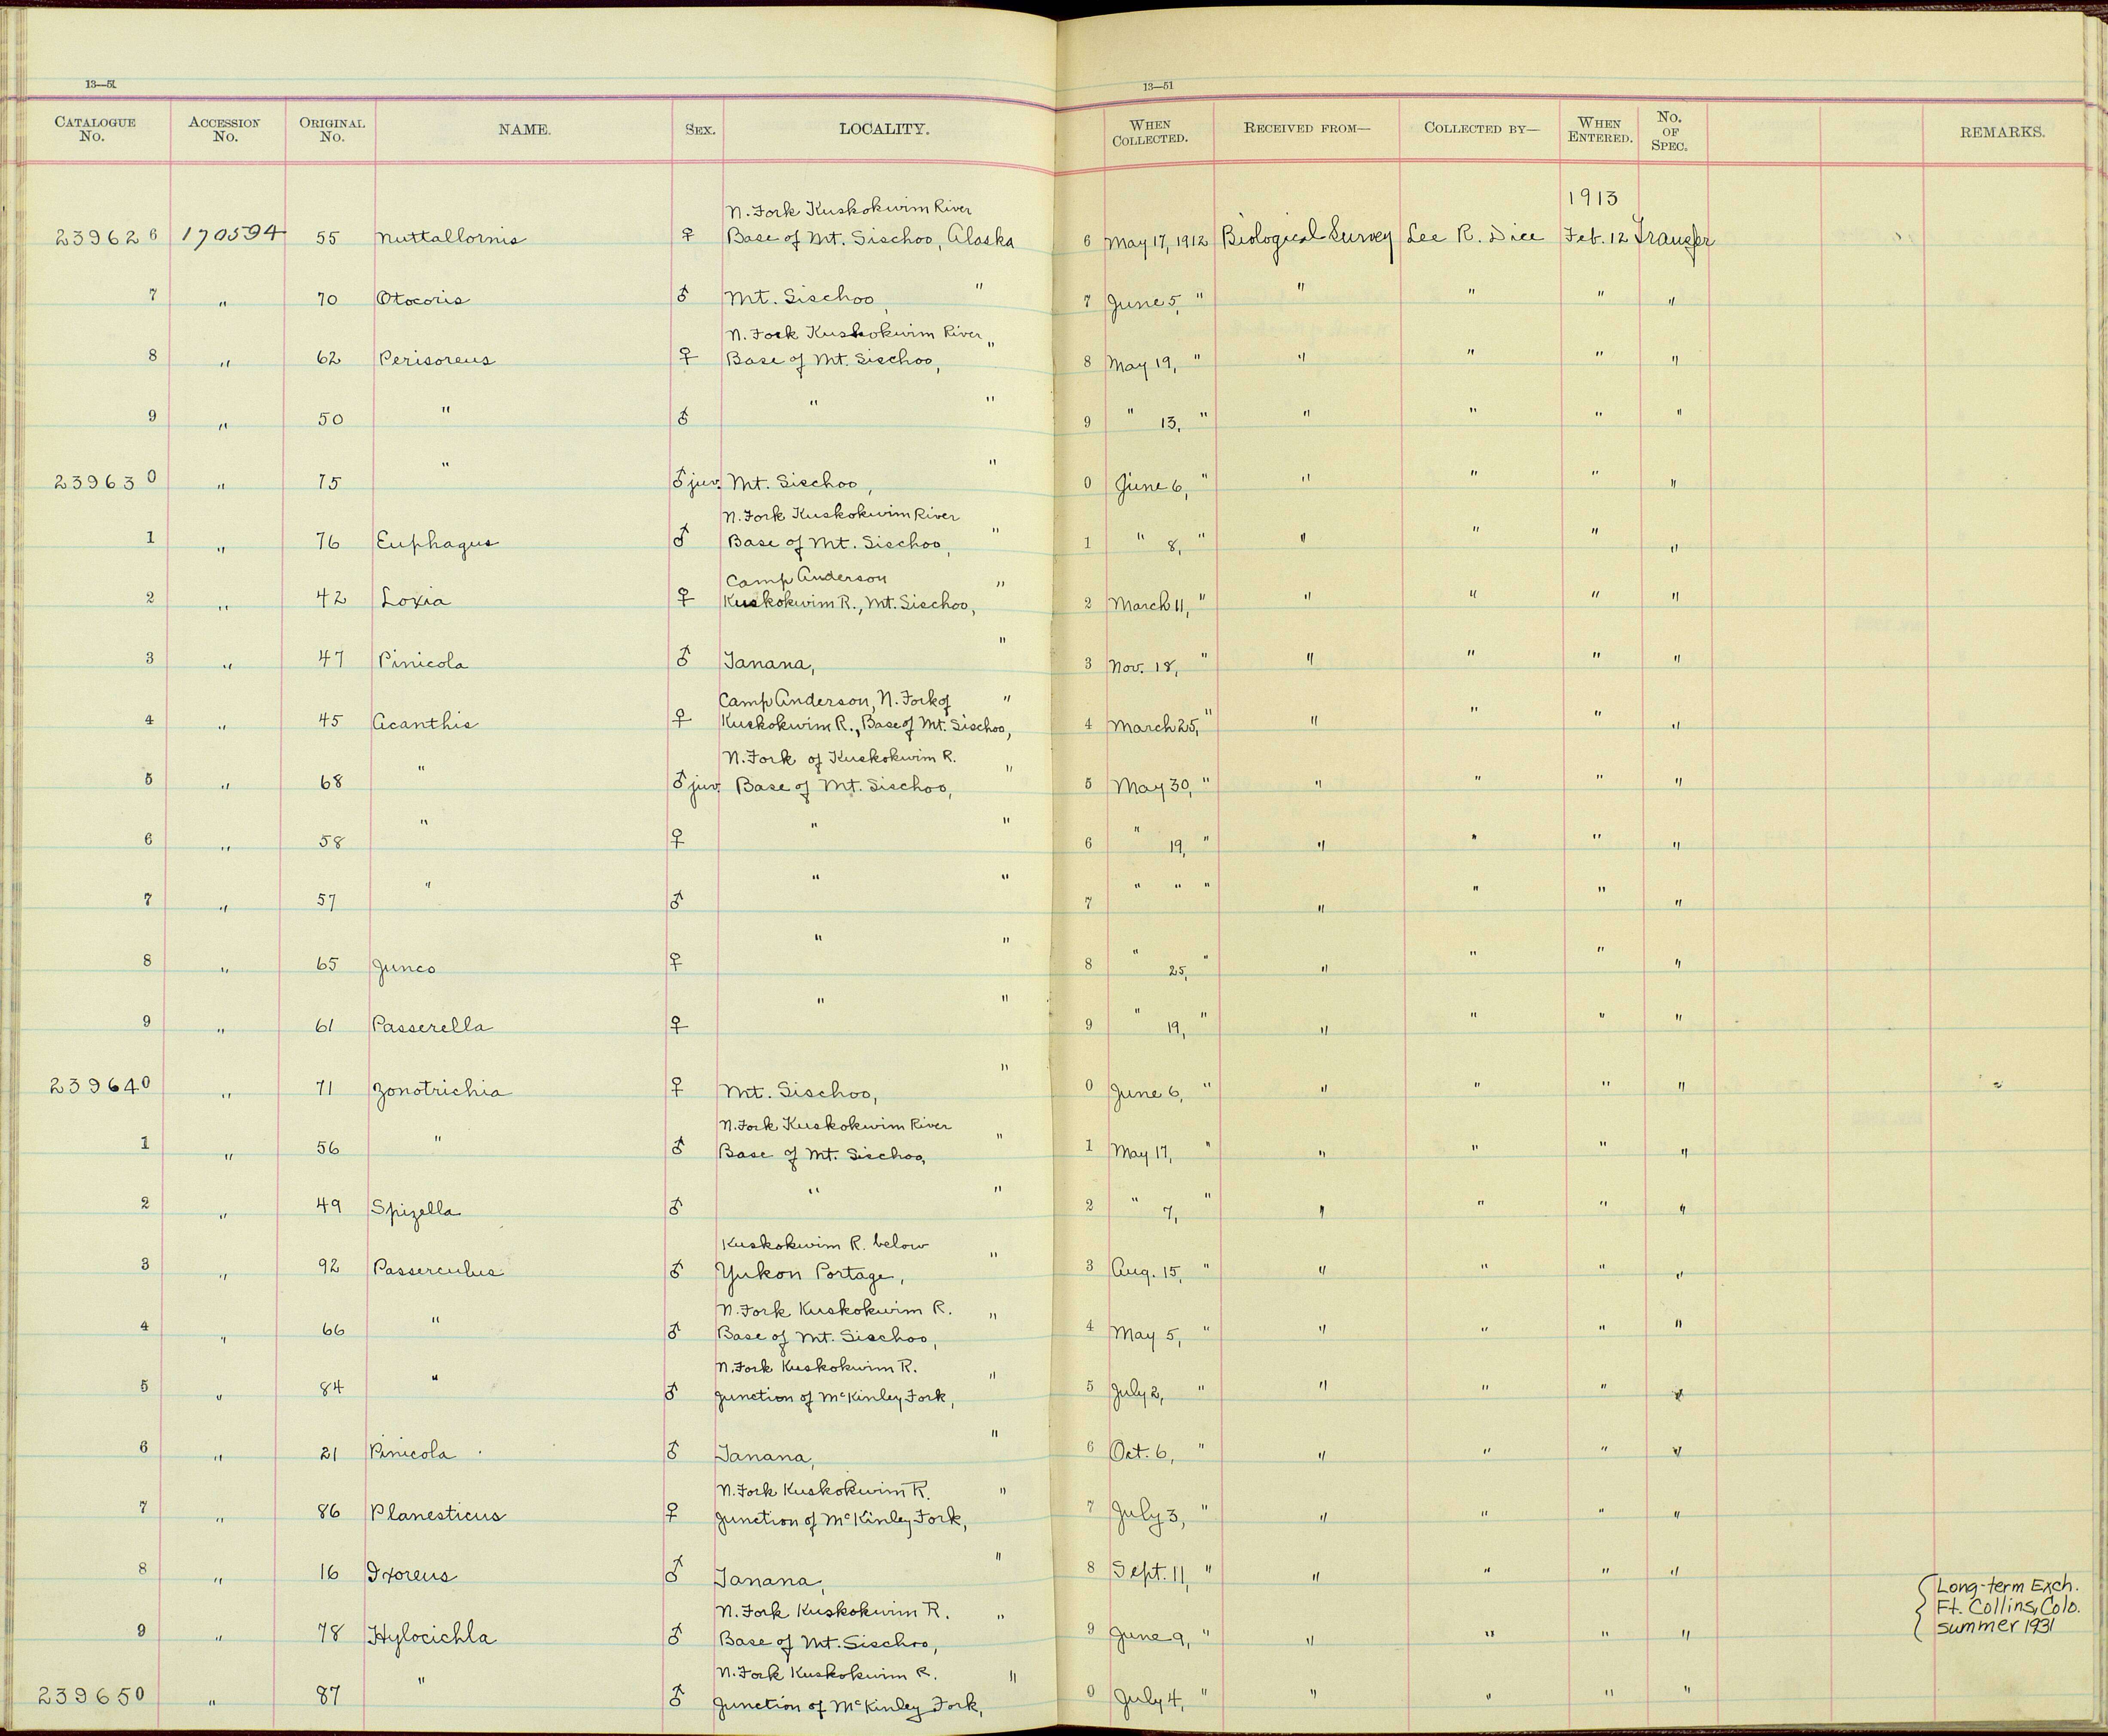 13—51
13—51
CATALOGUE No. ACCESSION No. ORIGINAL No. NAME. SEX. LOCALITY. WHEN COLLECTED. RECEIVED FROM— COLLECTED BY— WHEN ENTERED. No. OF SPEC. REMARKS.
1913
N. Fork Kuskokwim River
239626 170594 55 Nuttallornis ♀ Base of Mt. Sischoo, Alaska 6 May 17, 1912 Biological Survey Lee R. Dice Feb. 12 Transfer
7 " 70 Otocoris ♂ Mt. Sischoo, " 7 June 5, " " " " "
N. Fork Kuskokwim River
8 " 62 Perisoreus ♀ Base of Mt. Sischoo, " 8 May 19, " " " " "
9 " 50 " ♂ " " 9 " 13, " " " " "
239630 " 75 " ♂ juv. Mt. Sischoo, " 0 June 6, " " " " "
N. Fork Kuskokwim River
1 " 76 Euphagus ♂ Base of Mt. Sischoo, " 1 " 8, " " " " "
Camp Anderson
2 " 42 Loxia ♀ Kuskokwim R., Mt. Sischoo, " 2 March 11, " " " " "
3 " 47 Pinicola ♂ Tanana, " 3 Nov. 18, " " " " "
Camp Anderson, N. Fork of
4 " 45 Acanthis ♀ Kuskokwim R., Base of Mt. Sischoo, " 4 March 25, " " " " "
N. Fork of Kuskokwim R.
5 " 68 " ♂ juv. Base of Mt. Sischoo, " 5 May 30, " " " " "
6 " 58 " ♀ " " 6 " 19, " " " " "
7 " 57 " ♂ " " 7 " " " " " " "
8 " 65 Junco ♀ " " 8 " 25, " " " " "
9 " 61 Passerella ♀ " " 9 " 19, " " " " "
239640 " 71 Zonotrichia ♀ Mt. Sischoo, " 0 June 6, " " " " "
N. Fork Kuskokwim River
1 " 56 " ♂ Base of Mt. Sischoo, " 1 May 17, " " " " "
2 " 49 Spizella ♂ " " 2 " 7, " " " " "
Kuskokwim R. below
3 " 92 Passerculus ♂ Yukon Portage, " 3 Aug. 15, " " " " "
N. Fork Kuskokwim R.
4 " 66 " ♂ Base of Mt. Sischoo, " 4 May 5, " " " " "
N. Fork Kuskokwim R.
5 " 84 " ♂ Junction of McKinley Fork, " 5 July 2, " " " " "
6 " 21 Pinicola ♂ Tanana, " 6 Oct. 6, " " " " "
N. Fork Kuskokwim R.
7 " 86 Planesticus ♀ Junction of McKinley Fork, " 7 July 3, " " " " "
8 " 16 Ixoreus ♂ Tanana, " 8 Sept. 11, " " " " "
N. Fork Kuskokwim R.
9 " 78 Hylocichla ♂ Base of Mt. Sischoo, " 9 June 9, " " " " "
Long-term Exch.
Ft. Collins, Colo.
summer 1931
N. Fork Kuskokwim R.
239650 " 87 " ♂ Junction of McKinley Fork, " 0 July 4, " " " " "